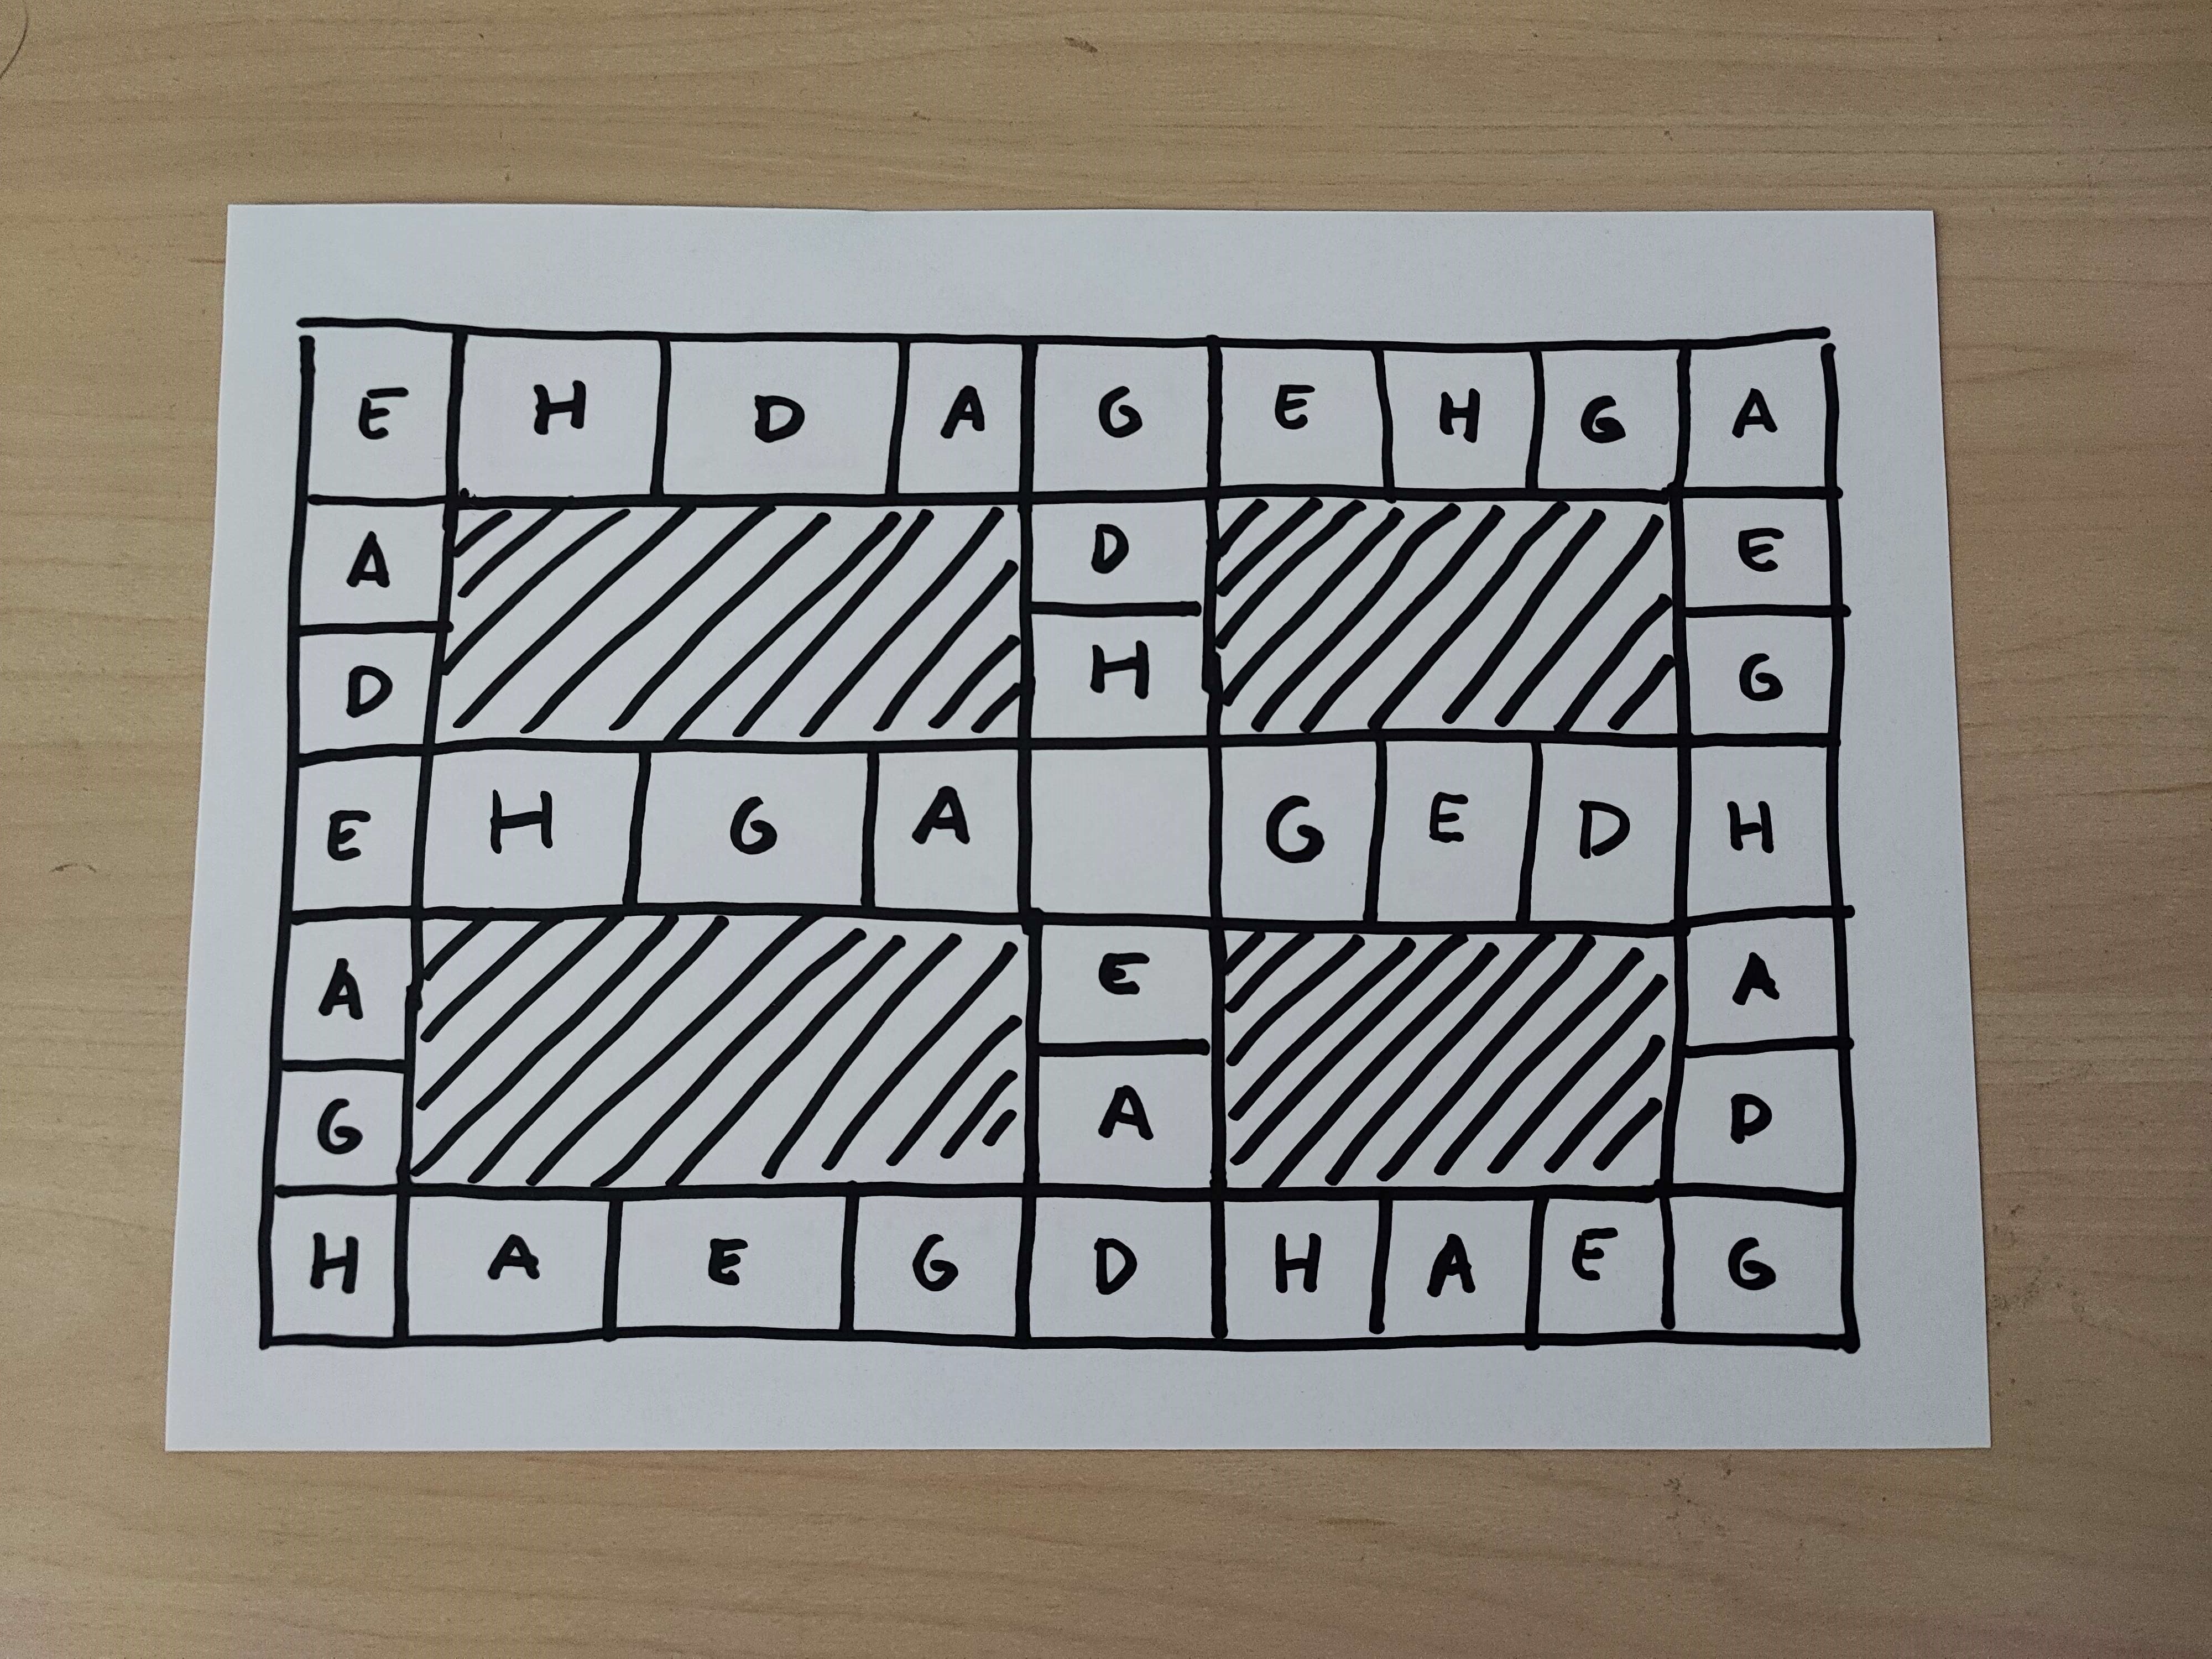 E H D A G E H G A
A D E
D H G
E H G A G E D H
A E A
G A D
H A E G D H A E G